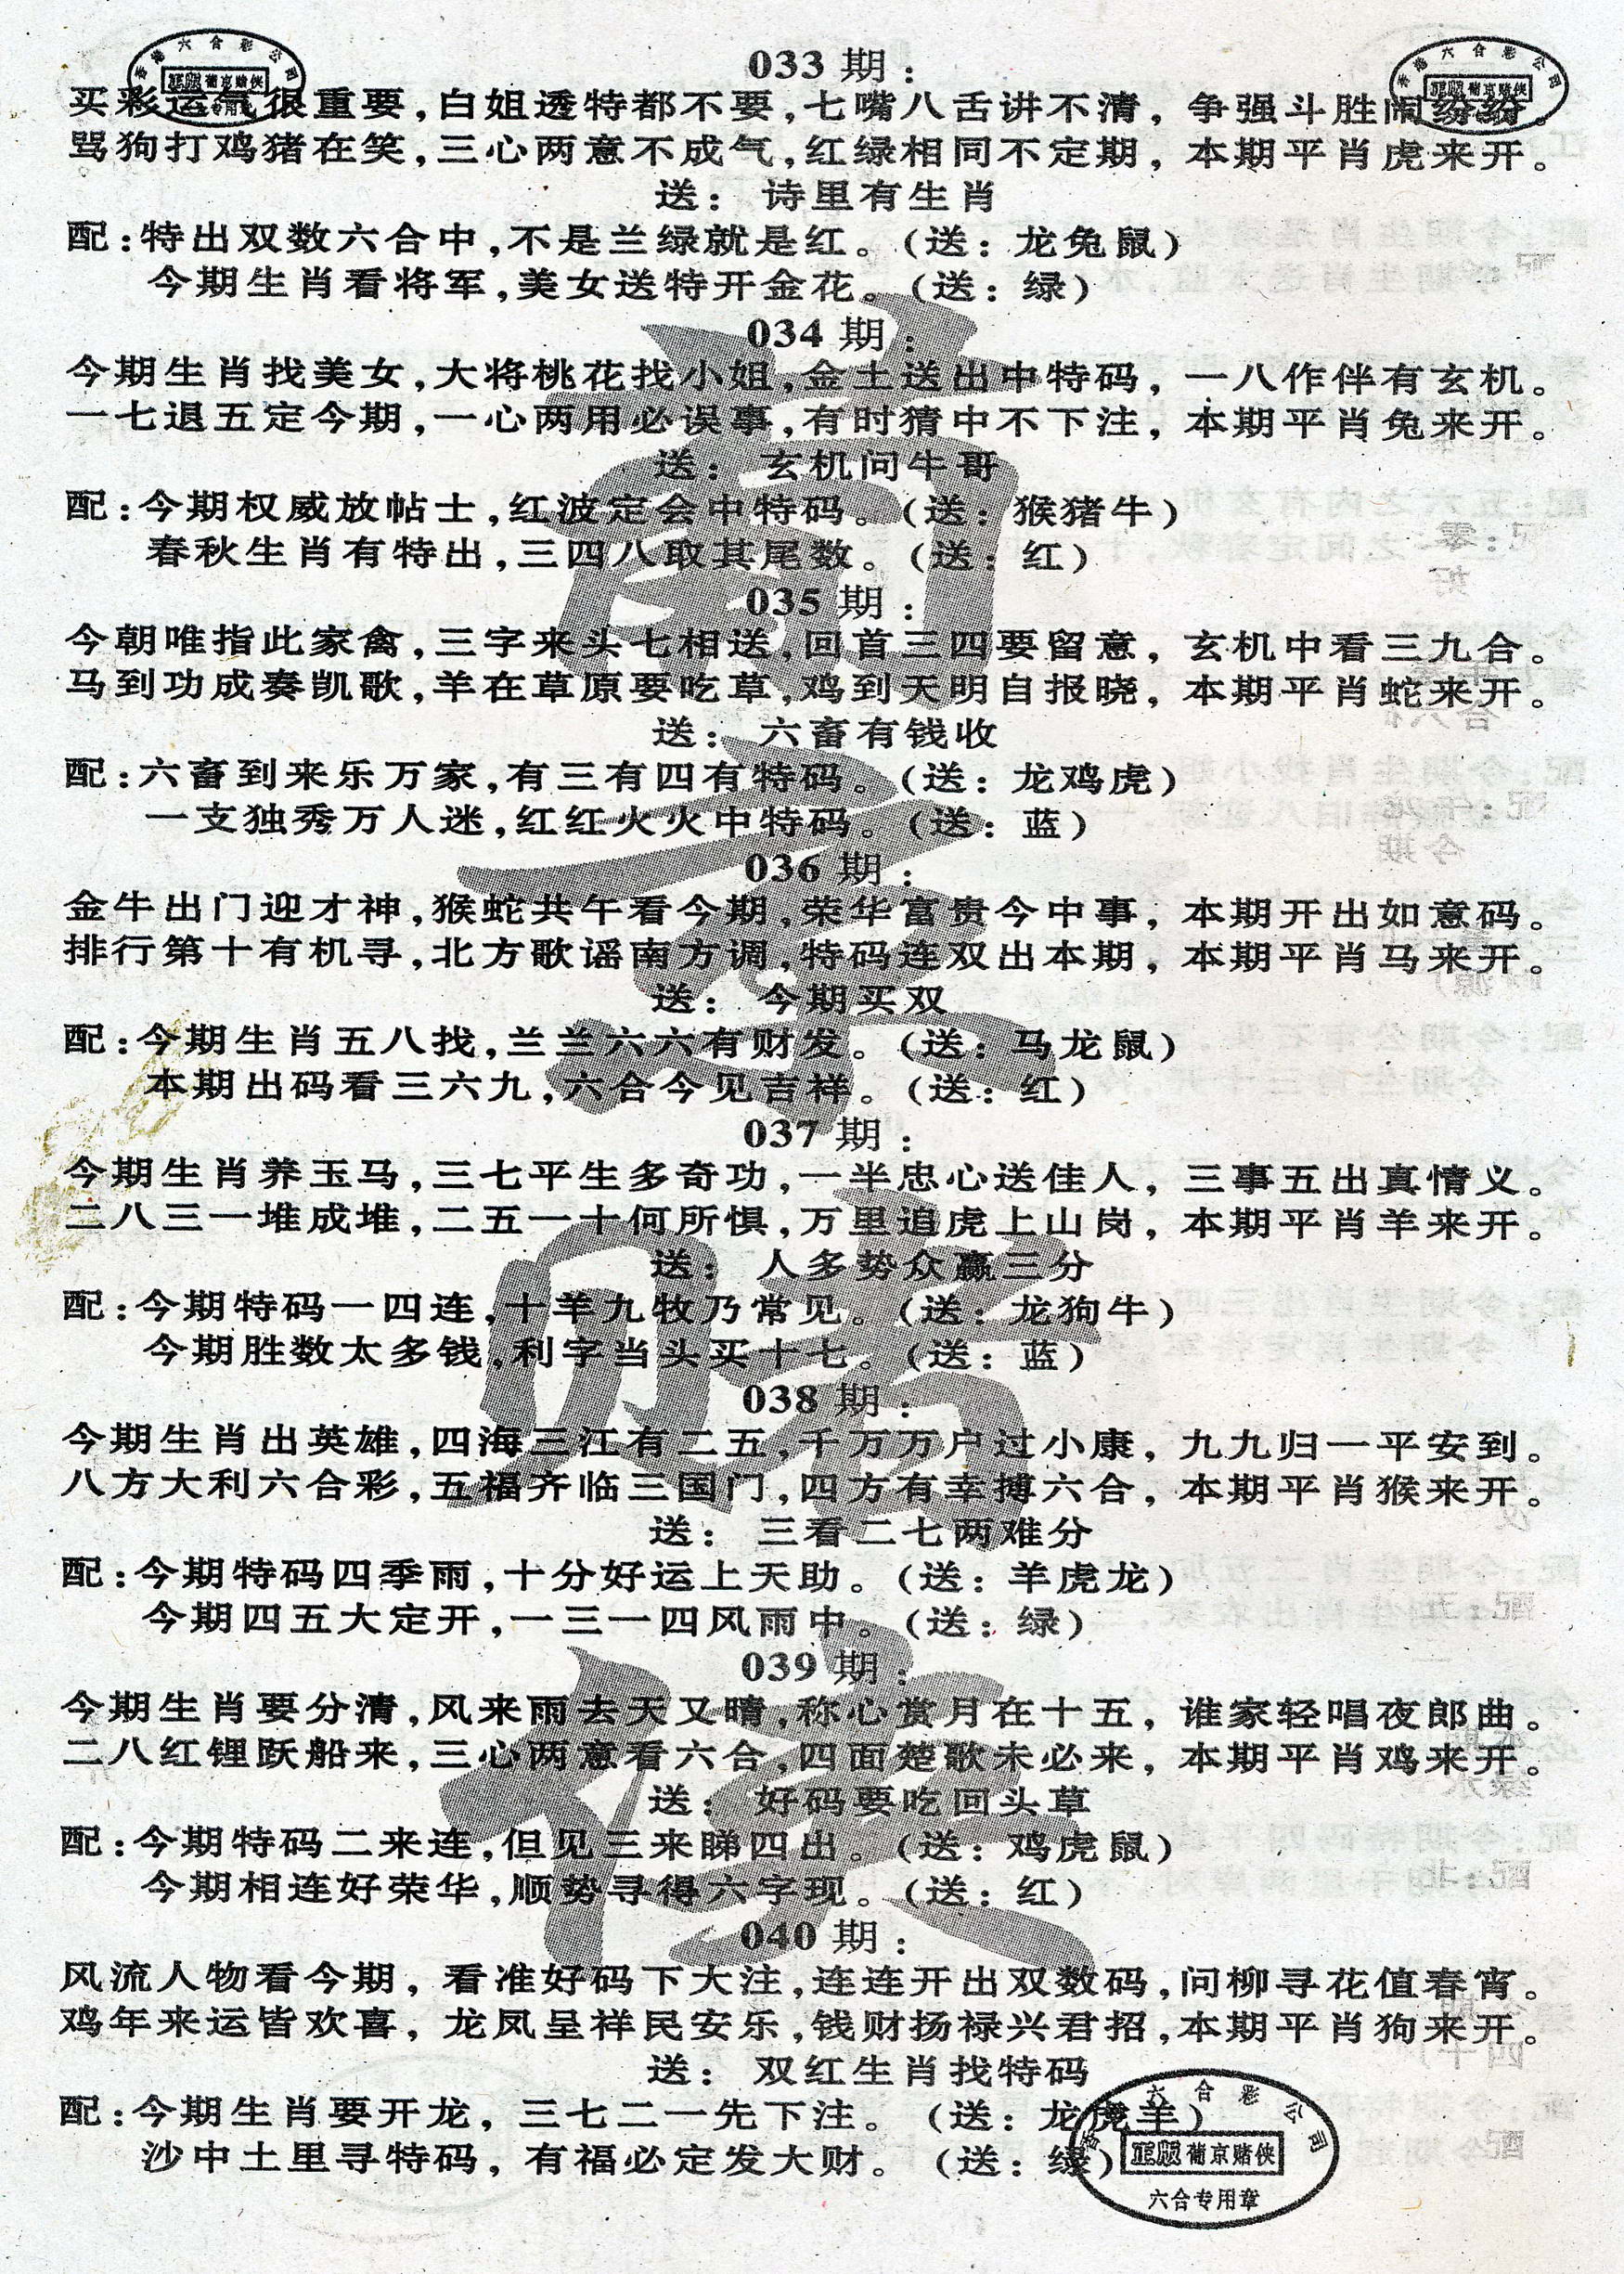 033 期：
买彩运气很重要，白姐透特都不要，七嘴八舌讲不清，争强斗胜闹纷纷。
骂狗打鸡猪在笑，三心两意不成气，红绿相同不定期，本期平肖虎来开。
送：诗里有生肖
配：特出双数六合中，不是兰绿就是红。（送：龙兔鼠）
今期生肖看将军，美女送特开金花。（送：绿）
034 期：
今期生肖找美女，大将桃花找小姐，金土送出中特码，一八作伴有玄机。
一七退五定今期，一心两用必误事，有时猜中不下注，本期平肖兔来开。
送：玄机问牛哥
配：今期权威放帖士，红波定会中特码。（送：猴猪牛）
春秋生肖有特出，三四八取其尾数。（送：红）
035 期：
今朝唯指此家禽，三字来头七相送，回首三四要留意，玄机中看三九合。
马到功成奏凯歌，羊在草原要吃草，鸡到天明自报晓，本期平肖蛇来开。
送：六畜有钱收
配：六畜到来乐万家，有三有四有特码。（送：龙鸡虎）
一支独秀万人迷，红红火火中特码。（送：蓝）
036 期：
金牛出门迎才神，猴蛇共午看今期，荣华富贵今中事，本期开出如意码。
排行第十有机寻，北方歌谣南方调，特码连双出本期，本期平肖马来开。
送：今期买双
配：今期生肖五八找，兰兰六六有财发。（送：马龙鼠）
本期出码看三六九，六合今见吉祥。（送：红）
037 期：
今期生肖养玉马，三七平生多奇功，一半忠心送佳人，三事五出真情义。
二八三一堆成堆，二五一十何所惧，万里追虎上山岗，本期平肖羊来开。
送：人多势众赢三分
配：今期特码一四连，十羊九牧乃常见。（送：龙狗牛）
今期胜数太多钱，利字当头买十七。（送：蓝）
038 期：
今期生肖出英雄，四海三江有二五，千万万户过小康，九九归一平安到。
八方大利六合彩，五福齐临三国门，四方有幸搏六合，本期平肖猴来开。
送：三看二七两难分
配：今期特码四季雨，十分好运上天助。（送：羊虎龙）
今期四五大定开，一三一四风雨中。（送：绿）
039 期：
今期生肖要分清，风来雨去天又晴，称心赏月在十五，谁家轻唱夜郎曲。
二八红锂跃船来，三心两意看六合，四面楚歌未必来，本期平肖鸡来开。
送：好码要吃回头草
配：今期特码二来连，但见三来睇四出。（送：鸡虎鼠）
今期相连好荣华，顺势寻得六字现。（送：红）
040 期：
风流人物看今期，看准好码下大注，连连开出双数码，问柳寻花值春宵。
鸡年来运皆欢喜，龙凤呈祥民安乐，钱财扬禄兴君招，本期平肖狗来开。
送：双红生肖找特码
配：今期生肖要开龙，三七二一先下注。（送：龙虎羊）
沙中土里寻特码，有福必定发大财。（送：绿）
香港六合彩公司
正版葡京赌侠
六合专用章